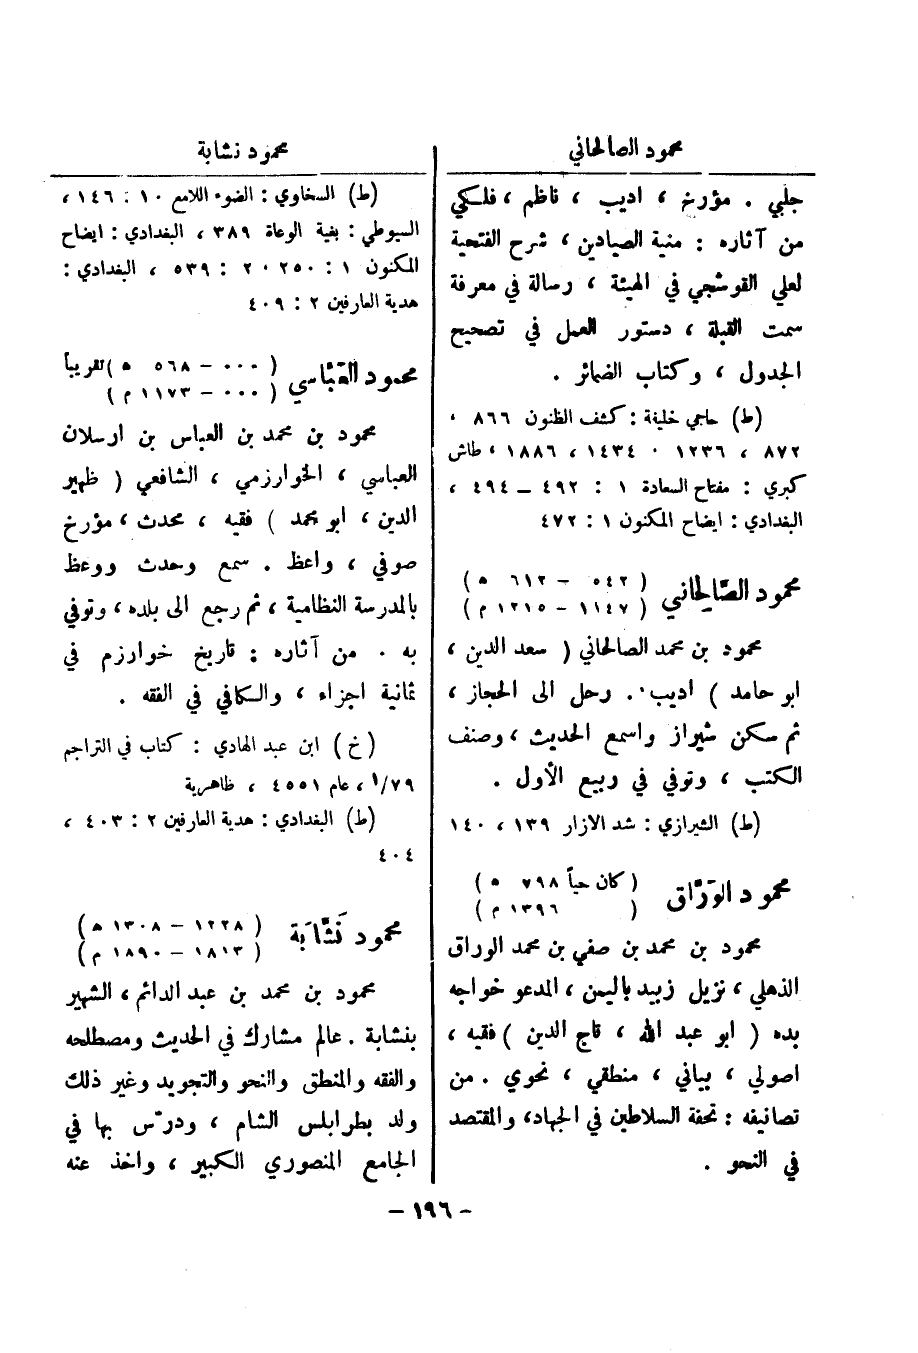 محمود الصالحاني
جلبي . مؤرخ ، اديب ، ناظم ، فلكي
من آثاره : منية الصيادين ، شرح الفتحية
لعلي القوشجي في الهيئة ، رسالة في معرفة
سمت القبلة ، دستور العمل في تصحيح
الجدول ، وكتاب الضمائر .
(ط) حاجي خليفة : كشف الظنون ٨٦٦ ،
٨٧٢ ، ١٢٣٦ ، ١٤٣٤ ، ١٨٨٦ ، طاش
كبري : مفتاح السعادة ١ : ٤٩٢ – ٤٩٤ ،
البغدادي : ايضاح المكنون ١ : ٤٧٢
محمود الصَّالحاني ( ٥٤٢ – ٦١٢ ه )
( ١١٤٧ – ١٢١٥ م )
محمود بن محمد الصالحاني ( سعد الدين ،
ابو حامد ) اديب . رحل الى الحجاز ،
ثم سكن شيراز واسمع الحديث ، وصنف
الكتب ، وتوفي في ربيع الأول .
(ط) الشيرازي : شد الازار ١٣٩ ، ١٤٠
محمود الورَّاق ( كان حياً ٧٩٨ ه )
( ١٣٩٦ م )
محمود بن محمد بن صفي بن محمد الوراق
الذهلي ، نزيل زبيد باليمن ، المدعو خواجه
بده ( ابو عبد الله ، تاج الدين ) فقيه ،
اصولي ، بياني ، منطقي ، نحوي . من
تصانيفه : تحفة السلاطين في الجهاد، والمقتصد
في النحو .
محمود نشابة
(ط) السخاوي : الضوء اللامع ١٠ : ١٤٦ ،
السيوطي : بغية الوعاة ٣٨٩ ، البغدادي : ايضاح
المكنون ١ : ٢٥٠ ، ٢ : ٥٣٩ ، البغدادي :
هدية العارفين ٢ : ٤٠٩
محمود العَبَّاسي ( ٠٠٠ – ٥٦٨ ه )تقريباً
( ٠٠٠ – ١١٧٣ م )
محمود بن محمد بن العباس بن ارسلان
العباسي ، الخوارزمي ، الشافعي ( ظهير
الدين ، ابو محمد ) فقيه ، محدث ، مؤرخ
صوفي ، واعظ . سمع وحدث ووعظ
بالمدرسة النظامية ، ثم رجع الى بلده ، وتوفي
به . من آثاره : تاريخ خوارزم في
ثمانية اجزاء ، والكافي في الفقه .
(خ) ابن عبد الهادي : كتاب في التراجم
١/٧٩ ، عام ٤٥٥١ ، ظاهرية
(ط) البغدادي : هدية العارفين ٢ : ٤٠٣ ،
٤٠٤
محمود نَشَّابَة ( ١٢٢٨ – ١٣٠٨ ه )
( ١٨١٣ – ١٨٩٠ م )
محمود بن محمد بن عبد الدائم ، الشهير
بنشابة . عالم مشارك في الحديث ومصطلحه
والفقه والمنطق والنحو والتجويد وغير ذلك
ولد بطرابلس الشام ، ودرّس بها في
الجامع المنصوري الكبير ، واخذ عنه
– ١٩٦ –